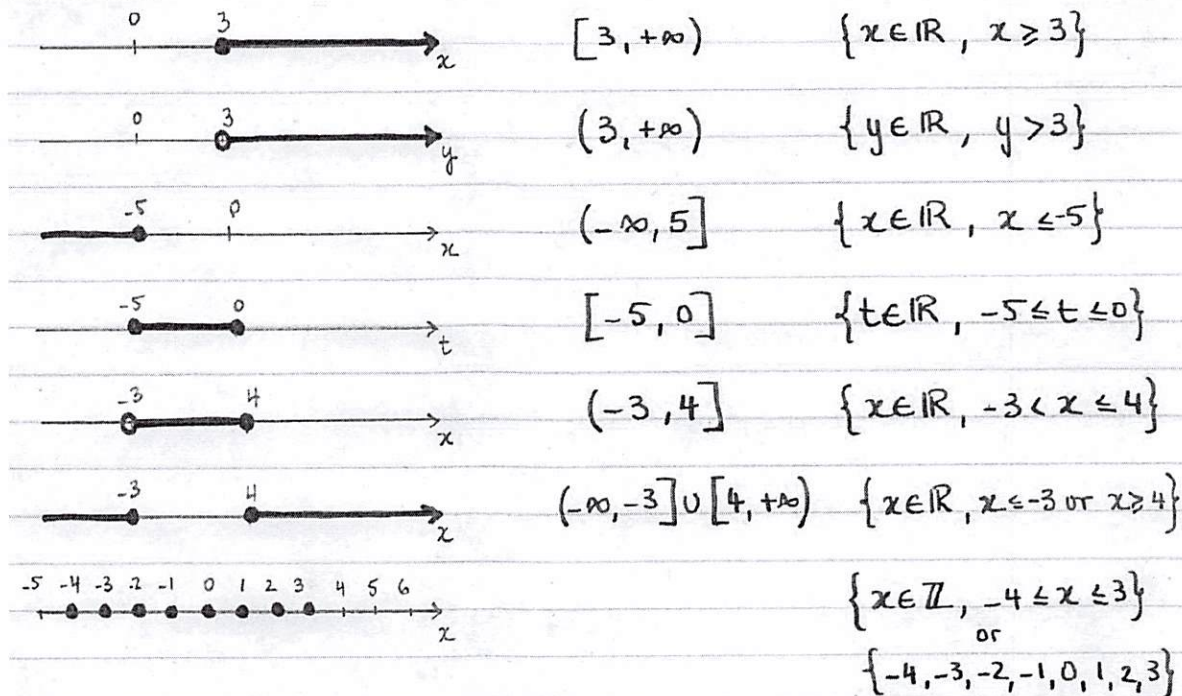 0 3 x [3, +∞) {x ∈ ℝ, x ≥ 3}
0 3 y (3, +∞) {y ∈ ℝ, y > 3}
-5 0 x (-∞, 5] {x ∈ ℝ, x ≤ -5}
-5 0 t [-5, 0] {t ∈ ℝ, -5 ≤ t ≤ 0}
-3 4 x (-3, 4] {x ∈ ℝ, -3 < x ≤ 4}
-3 4 x (-∞, -3] ∪ [4, +∞) {x ∈ ℝ, x ≤ -3 or x ≥ 4}
-5 -4 -3 -2 -1 0 1 2 3 4 5 6 x {x ∈ ℤ, -4 ≤ x ≤ 3}
or
{-4, -3, -2, -1, 0, 1, 2, 3}